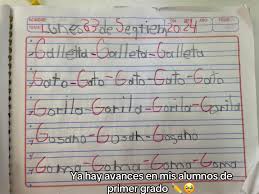 Lunes 23 de Septiembre 2024
Galleta-Galleta-Galleta
Gato-Gato-Gato-Gato-Gato
Gorila-Gorila-Gorila-Gorila
Gusano-Gusano-Gusano
Goma-Goma-Goma-Goma
Ya hay avances en mis alumnos de
primer grado ✏️🥺